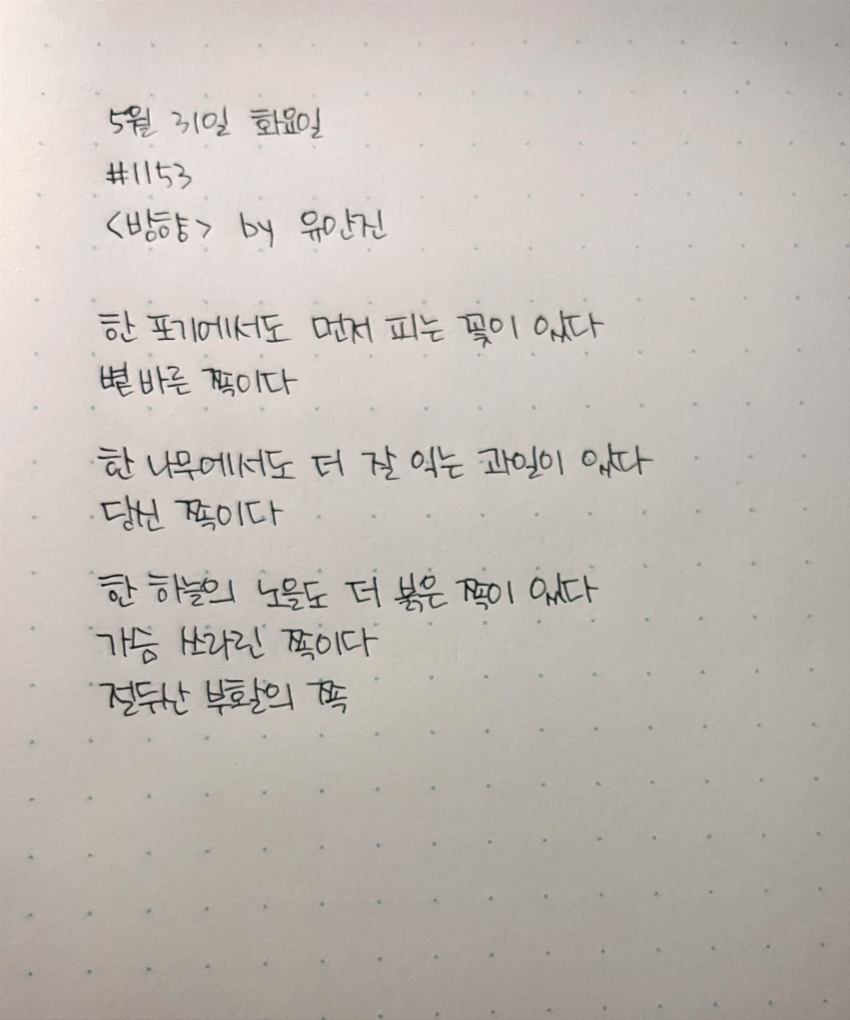 5월 31일 화요일
#1153
<방향> by 유안진
한 포기에서도 먼저 피는 꽃이 있다
볕바른 쪽이다
한 나무에서도 더 잘 익는 과일이 있다
당신 쪽이다
한 하늘의 노을도 더 붉은 쪽이 있다
가슴 쓰라린 쪽이다
절두산 부활의 쪽